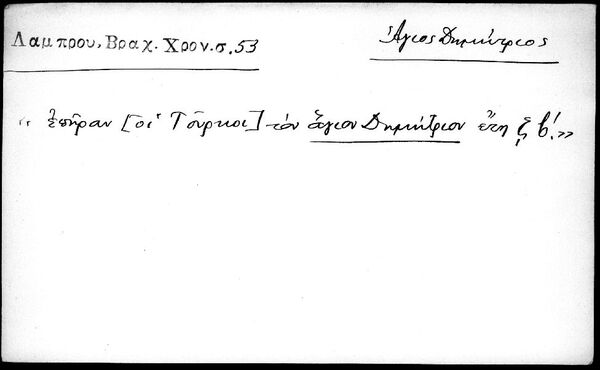 Λαμπρου, Βραχ. Χρον. σ. 53
Ἅγιος Δημήτριος
«ἐπῆραν [οἱ Τοῦρκοι] τὸν ἅγιον Δημήτριον ἔτη ͵ξ β'.»